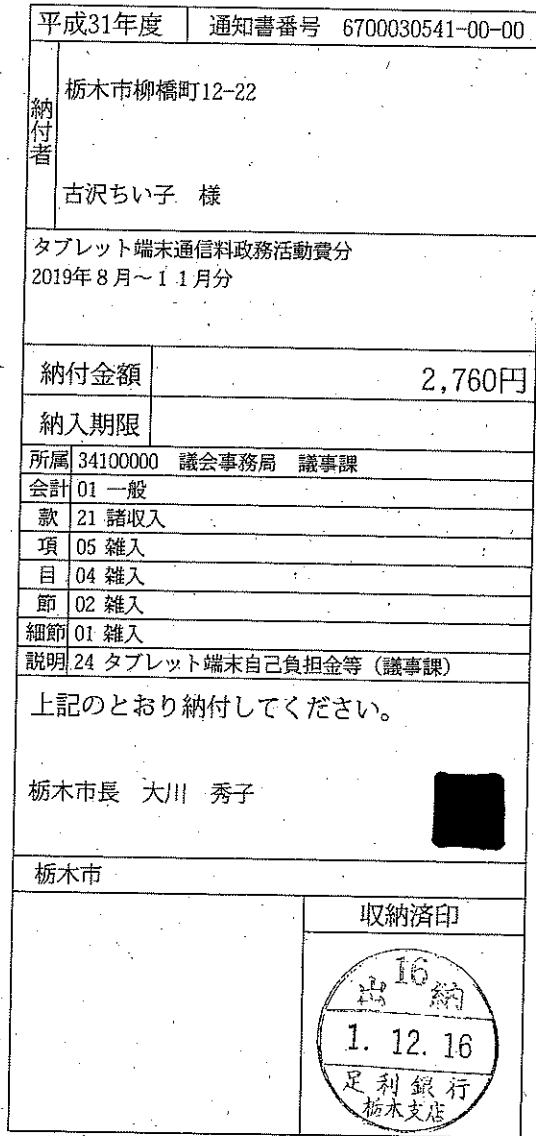 平成31年度 通知書番号 6700030541-00-00
納付者
栃木市柳橋町12-22
古沢ちい子 様
タブレット端末通信料政務活動費分
2019年8月～11月分
納付金額 2,760円
納入期限
所属 34100000 議会事務局 議事課
会計 01 一般
款 21 諸収入
項 05 雑入
目 04 雑入
節 02 雑入
細節 01 雑入
説明 24 タブレット端末自己負担金等（議事課）
上記のとおり納付してください。
栃木市長 大川 秀子
栃木市
収納済印
16
出納
1. 12. 16
足利銀行
栃木支店